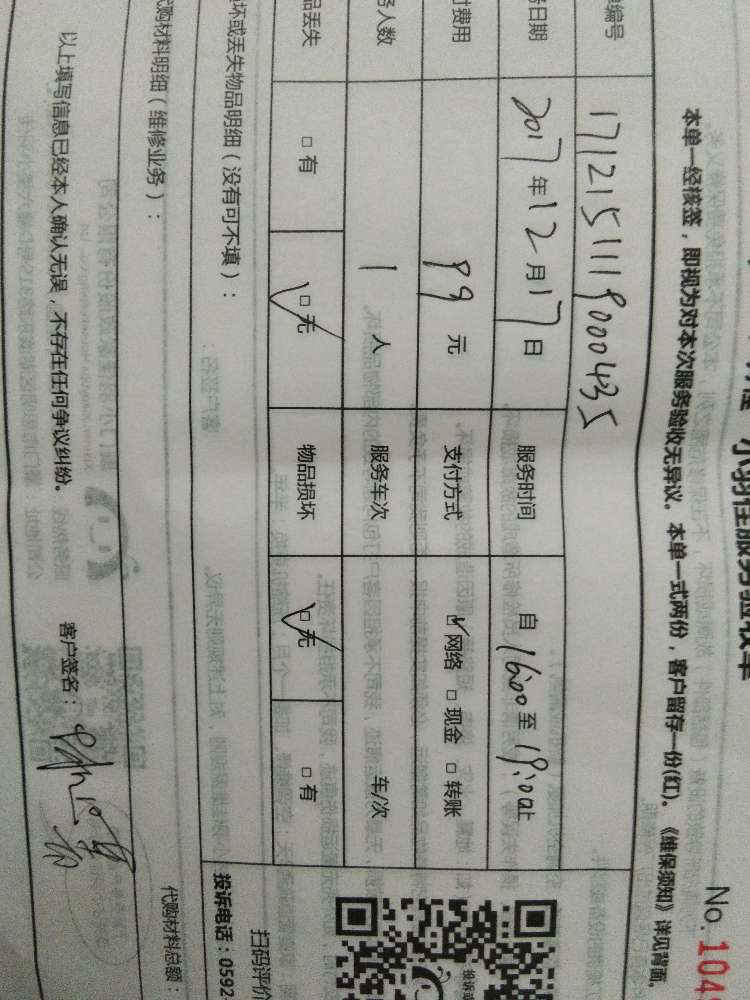 小羽佳服务验收单
No. 104
本单一经核签，即视为对本次服务验收无异议。本单一式两份，客户留存一份(红)。《维保须知》详见背面。
编号 17121511190000435
日期 2017年12月17日 服务时间 自16:00至19:00止
付费用 99元 支付方式 ☑网络 □现金 □转账
务人数 1人 服务车次 车/次
品丢失 □有 ☑无 物品损坏 ☑无 □有
坏或丢失物品明细（没有可不填）：
代购材料明细（维修业务）：
代购材料总额：
以上填写信息已经本人确认无误，不存在任何争议纠纷。
客户签名：
扫码评价
投诉电话：0592